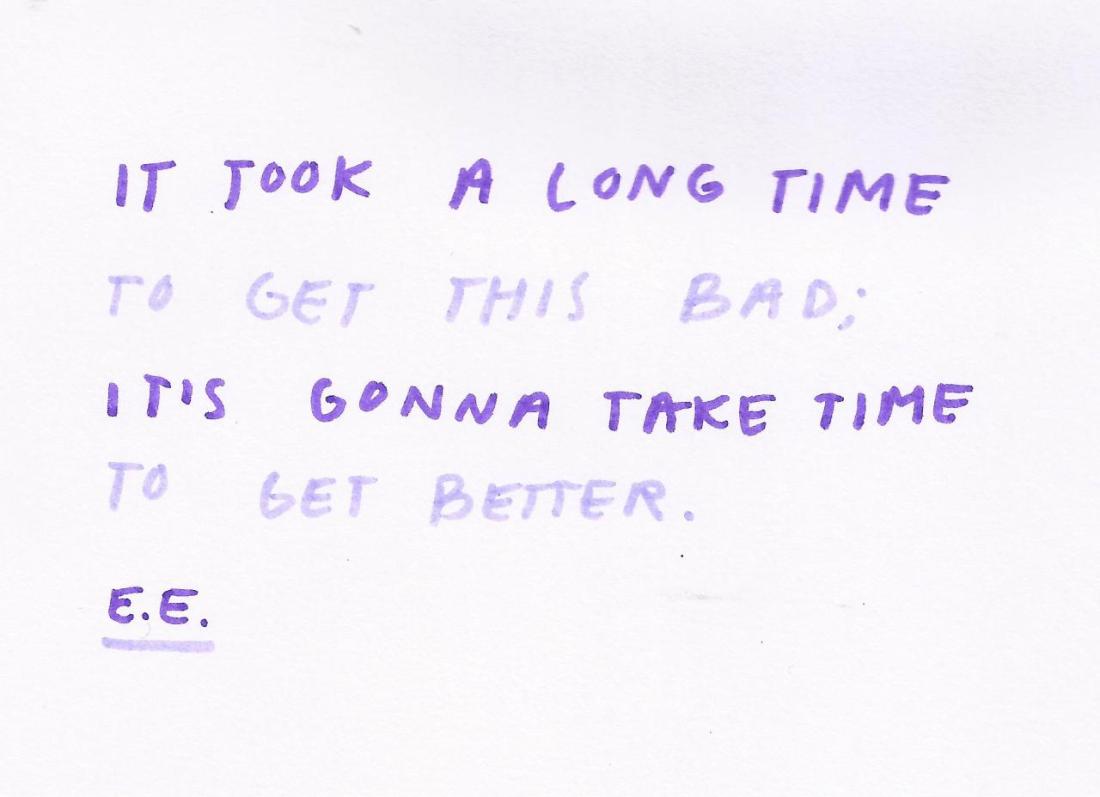 IT TOOK A LONG TIME
TO GET THIS BAD;
IT'S GONNA TAKE TIME
TO GET BETTER.
E.E.